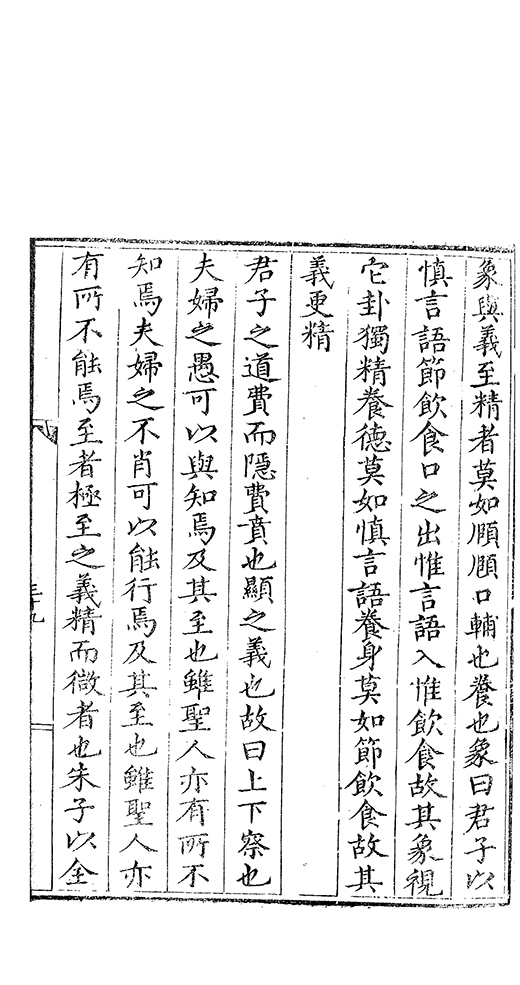 象與義至精者莫如頤頤口輔也養也象曰君子以
慎言語節飲食口之出惟言語入惟飲食故其象視
它卦獨精養德莫如慎言語養身莫如節飲食故其
義更精
君子之道費而隱費賁也顯之義也故曰上下察也
夫婦之愚可以與知焉及其至也雖聖人亦有所不
知焉夫婦之不肖可以能行焉及其至也雖聖人亦
有所不能焉至者極至之義精而微者也朱子以全
三十九